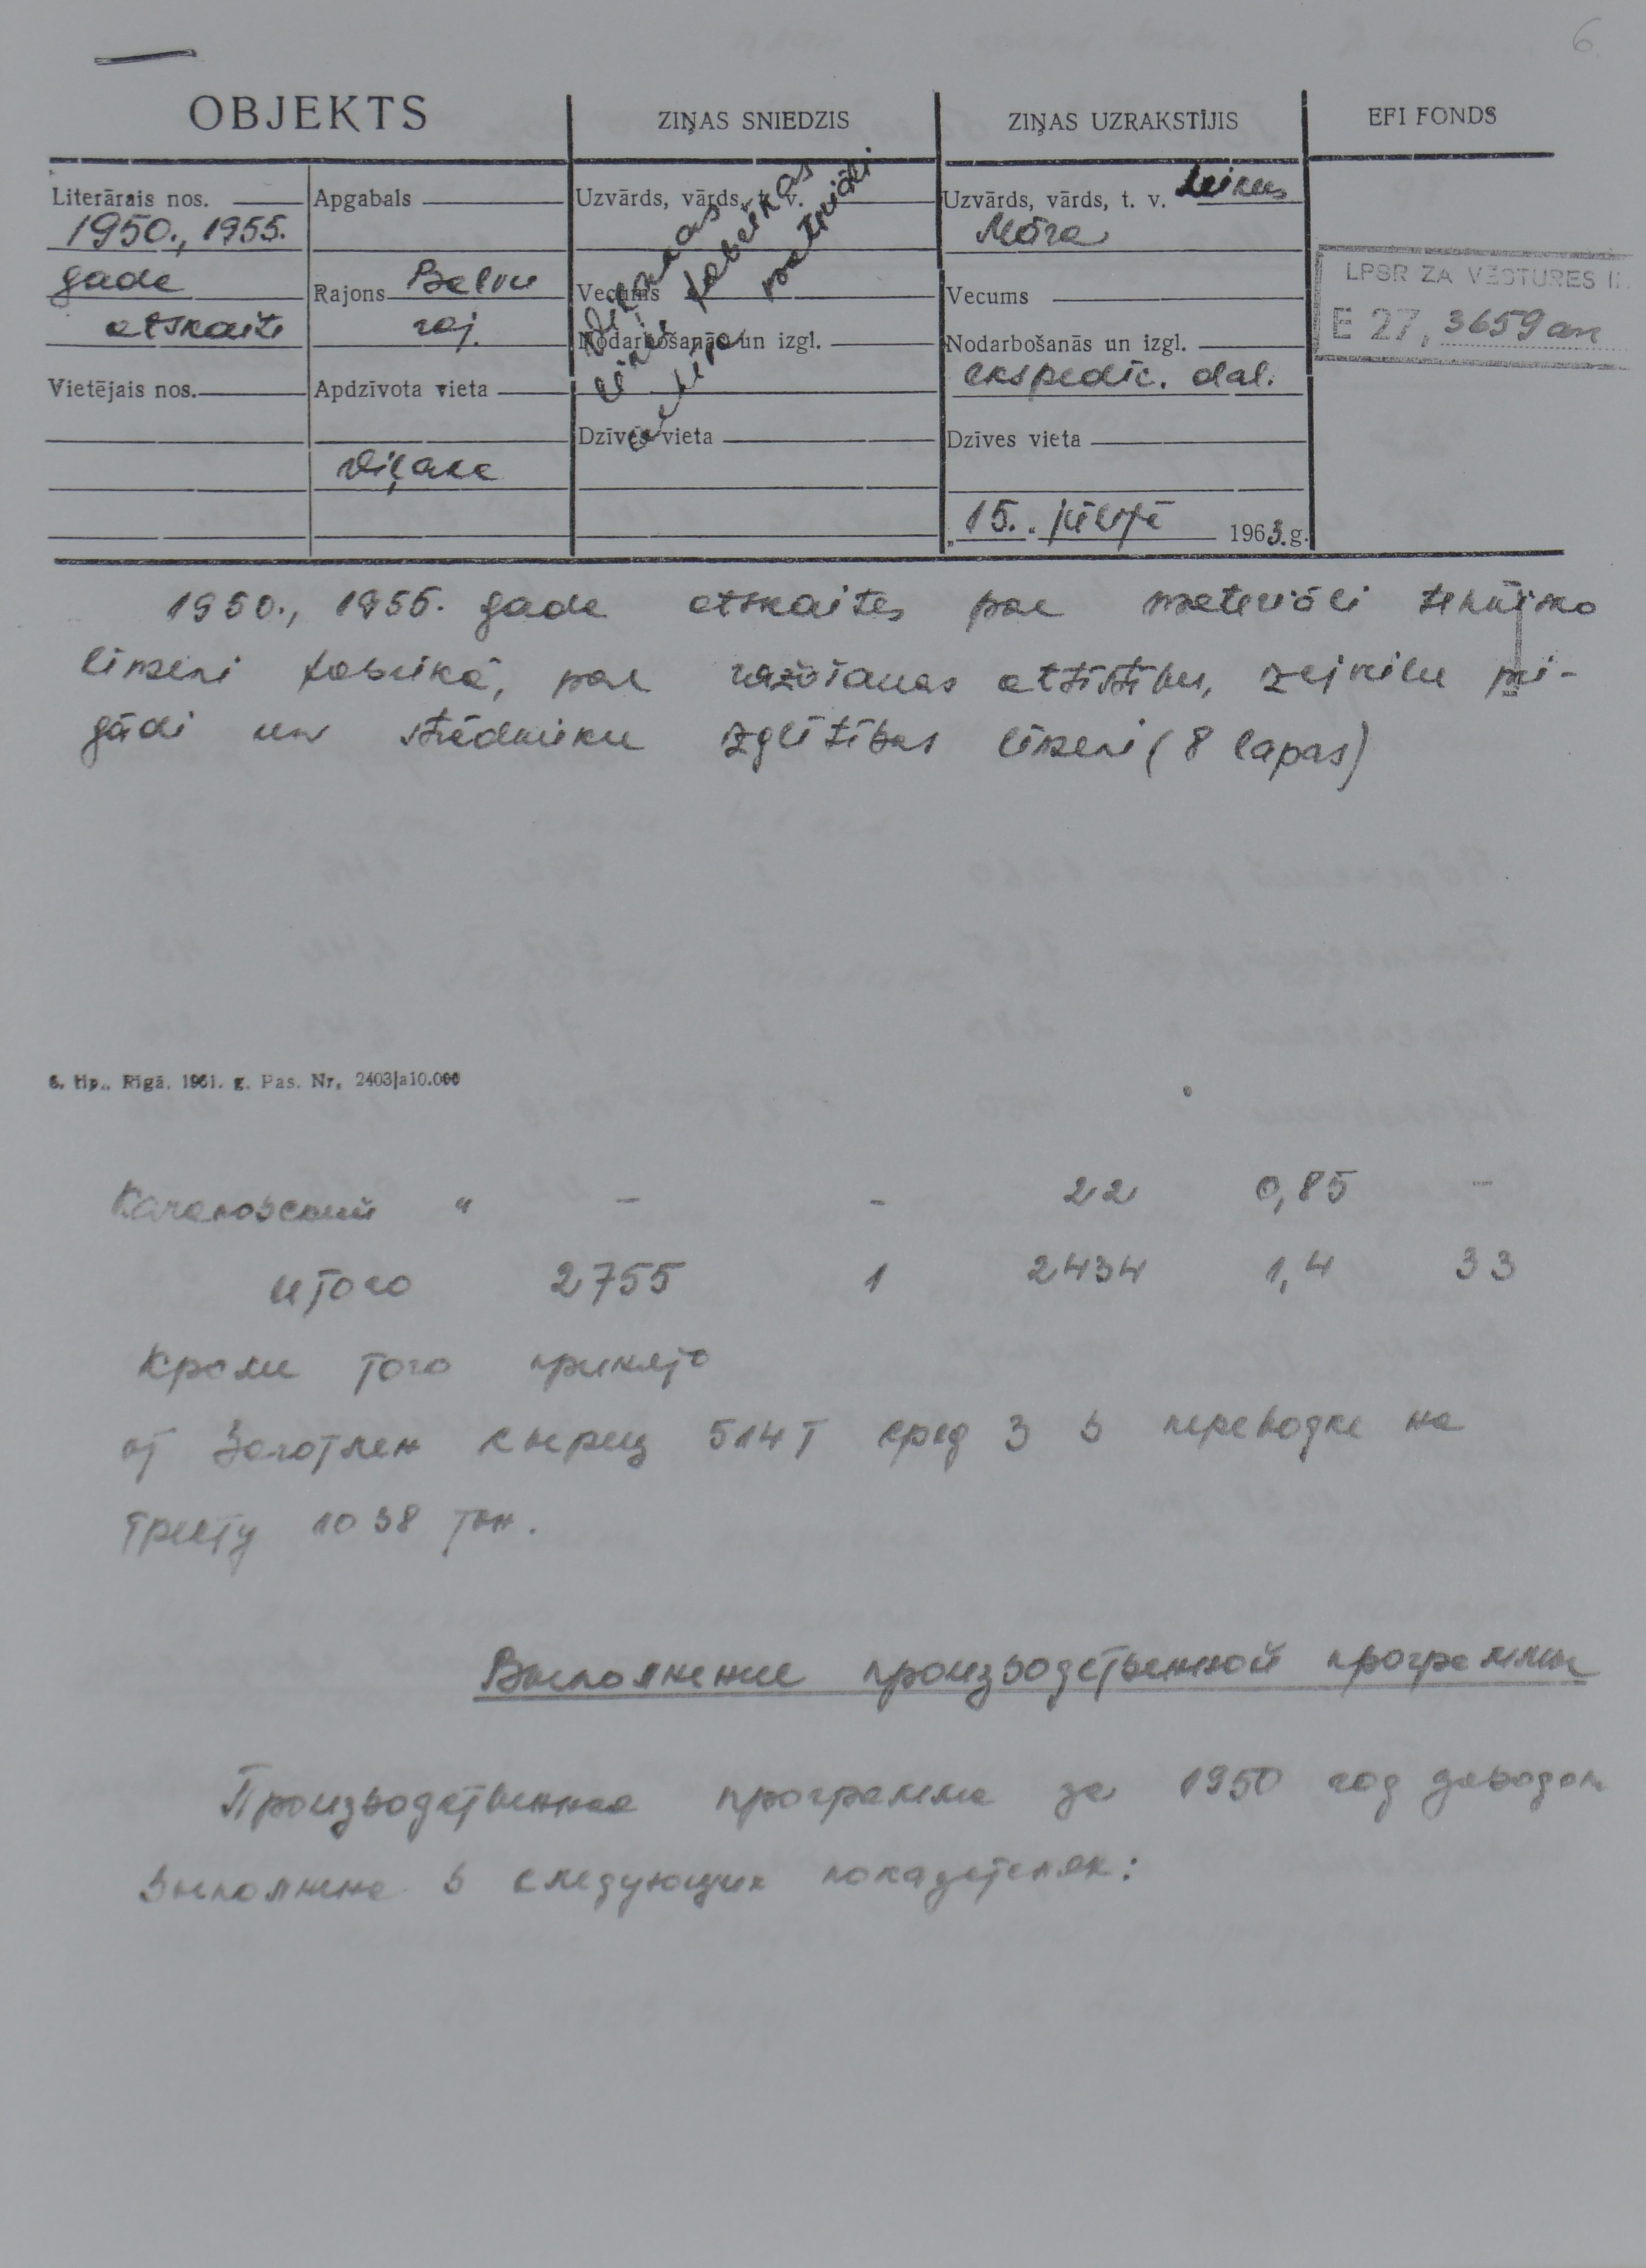 6
OBJEKTS
ZIŅAS SNIEDZIS
ZIŅAS UZRAKSTĪJIS
EFI FONDS
Literārais nos.
1950., 1955.
gada
atskaite
Vietējais nos.
Apgabals
Rajons Balvu
raj.
Apdzīvota vieta
Viļaka
Uzvārds, vārds, t. v.
Vecums
Nodarbošanās un izgl.
Dzīves vieta
Viļakas
linu fabrikas
arhīva materiāli
Uzvārds, vārds, t. v.
Māra
Vecums
Nodarbošanās un izgl.
ekspedīc. dal.
Dzīves vieta
„15.“ jūlijā 1963.g.
LPSR ZA VĒSTURES
E 27, 3659
1950., 1955. gada atskaites par materiāli tehnisko
līmeni fabrikā, par ražošanas attīstību, izejvielu pie-
gādi un strādnieku izglītības līmeni (8 lapas)
6. tip., Rīgā. 1961. g. Pas. Nr. 2403|a10.000
Качановский " – - 22 0,85 –
итого 2755 1 2434 1,4 33
Кроме того принято
от Заготлен сырец 514 т сред 3 в переводе на
тресту 1038 тн.
Выполнение производственной программы
Производственная программа за 1950 год заводом
выполнена в следующих показателях: